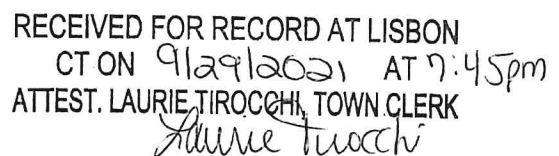 RECEIVED FOR RECORD AT LISBON
CT ON 9/29/2021 AT 7:45pm
ATTEST. LAURIE TIROCCHI, TOWN CLERK
Laurie Tirocchi